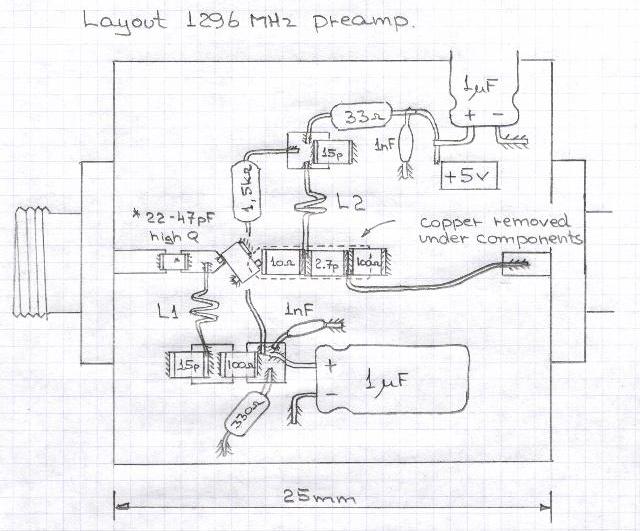 Layout 1296 MHz preamp.
1µF
+ −
33Ω
1nF
15p
+5v
1,5kΩ
L2
* 22-47pF
high Q
copper removed
under components
*
10Ω
2.7p
100Ω
*
L1
1nF
15p
100Ω
+
1µF
−
330Ω
25mm